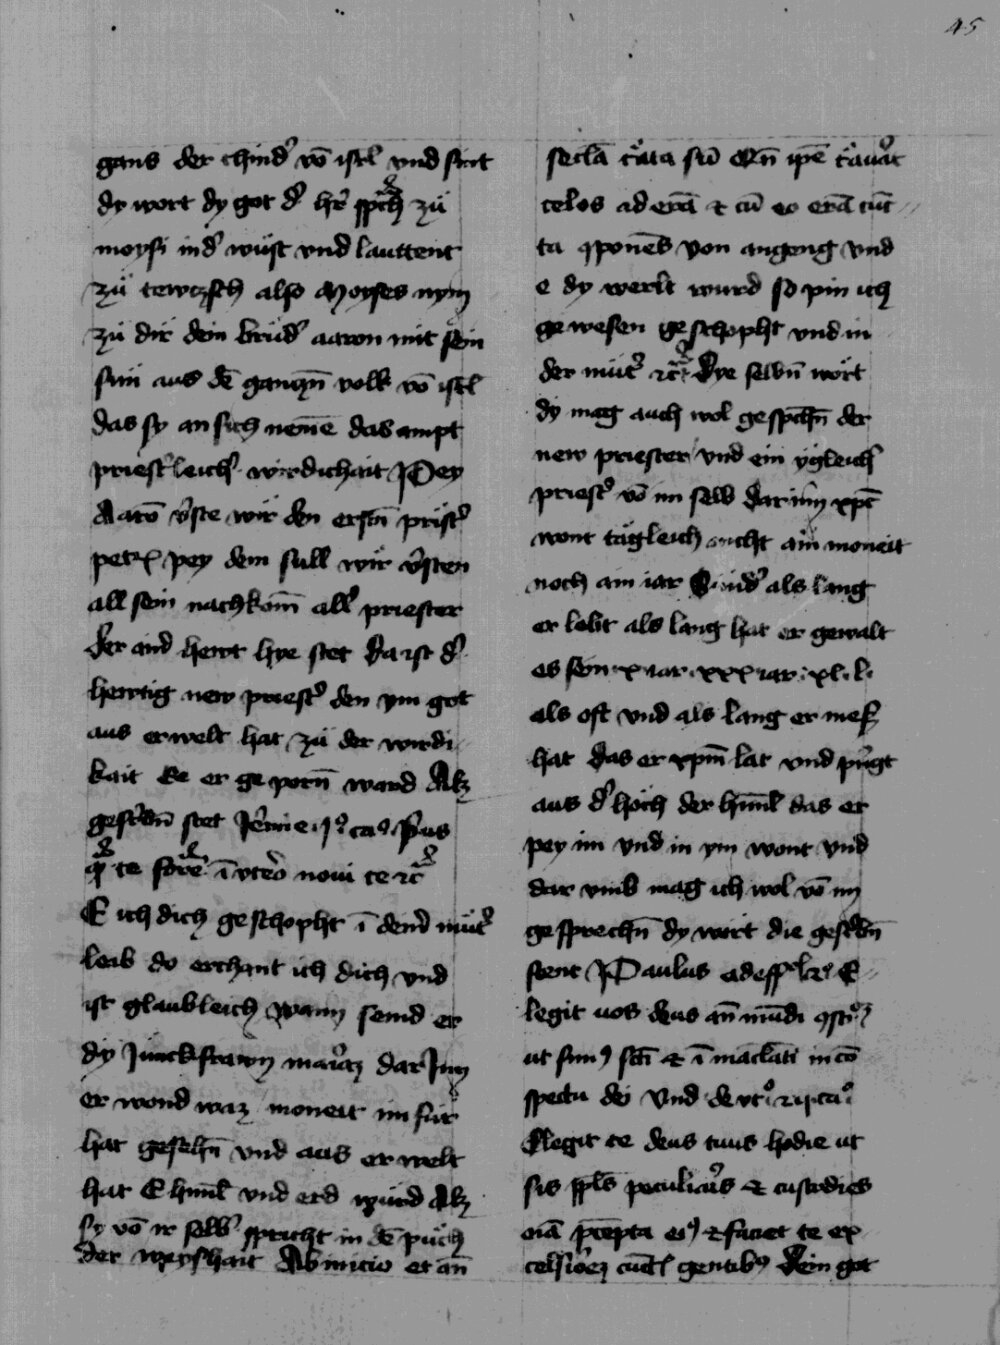 45
gans der chind' vō isrl̄ vnd sint
dy wort dy got d' h're sp̄ch zü
moysi in d' wüst vnd lauttent
zü tewczsch also Moyses nym
zü dir dein brüd' aaron mit sein
sün aus dē ganczn̄ volk vō isrl̄
das sy an sich nemē das ampt
priest'leich' wirdichait Pey
Aarō v'ste wir den erstn̄ prist'
petrꝰ pey dem süll wir v'sten
all sein nachkom̄ all' priester
der aind hewt hye stet Da ist d'
hewtig new priest' den ym got
aus erwelt hat zü der wirdi
kait Ee er ge porn̄ ward Alz
gescribn̄ stet Jeremie .j°. ca° P'us
q̄ te form̄e ī vtero noui te ⁊c̄
E ich dich geschopht ī deinr̄ müt'
leib do erchant ich dich vnd
ist glaubleich Wann seind er
dy Junckfrawn mariaz dar Jnn
er wond waz moneit im für
hat gesehn̄ vnd aus erwelt
hat E himl̄ vnd erd würd Alz
sy vō ir selb' spricht in dē püch
der weyshait Ab inicio et an̄
seclā c'ata sū Qn̄ ip̄e p'auit
celos aderā ⁊ cū eo erā cūc
ta ꝯponēs Von angeng vnd
e dy werlt wurd so pin ich
gewesen geschopht vnd in
der müt' ⁊c̄ Dye selbn̄ wort
dy mag auch wol gesp̄chn̄ der
new priester vnd ein ygleich'
priest' vō im selb Dar inn xp̄c
wont tägleich nicht ain moneit
noch ain iar Sund' als lang
er lebt als lang hat er gewalt
es sein x iar . xxx iar . xl . l .
als oft vnd als lang er mess
hat Das er xp̄m lat vnd p'ngt
aus d' höch der himl̄ das er
pey im vnd in ym wont vnd
dar vmb mag ich wol vō im
gesprechn̄ dy wort die gescribn̄
stent Paulus ad eph' E
legit uos deus an̄ mūdi ꝯst'
ut simꝰ sc̄i ⁊ īmaclati in cō
spectu dei Vnd deut°
Elegit te deus tuus hodie ut
sis ppl̄s peculiaris ⁊ custodies
oīa p̄cepta eiꝰ ⁊ faciet te ex
celsiorem cūctꝭ gentibꝰ Dein got